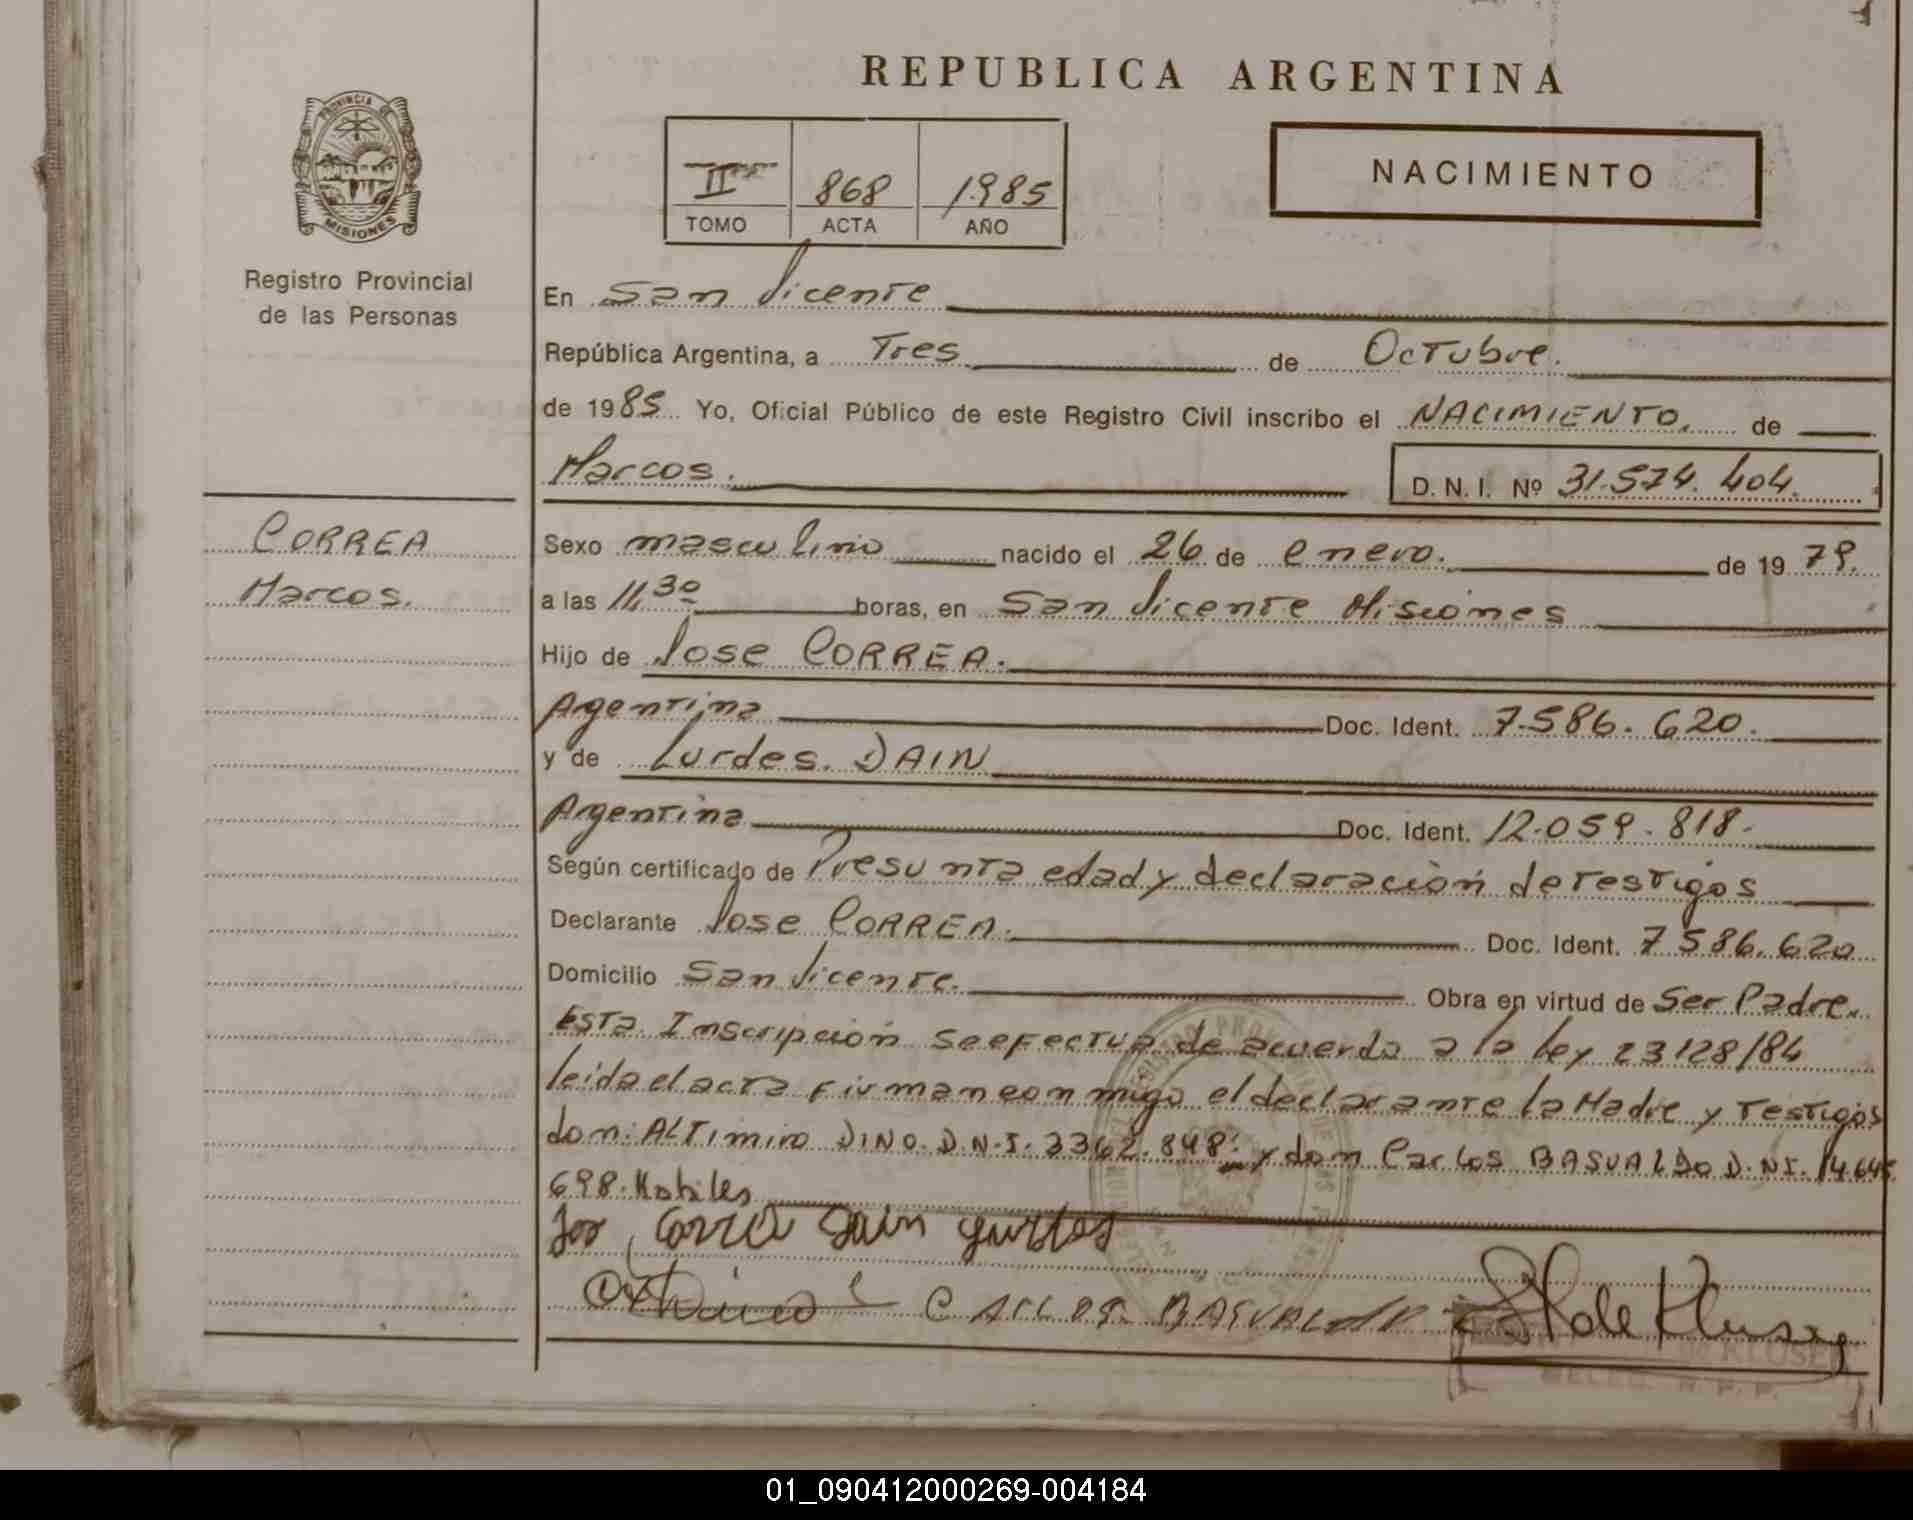 REPUBLICA ARGENTINA
PROVINCIA DE
MISIONES
Registro Provincial
de las Personas
II 868 1985
TOMO ACTA AÑO
NACIMIENTO
En San Vicente
República Argentina, a Tres de Octubre.
de 1985 Yo, Oficial Público de este Registro Civil inscribo el NACIMIENTO. de
Marcos. D. N. I. Nº 31.574.404.
CORREA
Marcos.
Sexo masculino nacido el 26 de enero. de 19 79.
a las 11,30 horas, en San Vicente Misiones
Hijo de Jose CORREA.
Argentina Doc. Ident. 7.586.620.
y de Lurdes. DAIN
Argentina Doc. Ident. 12.059.818.
Según certificado de Presunta edad y declaración de testigos
Declarante Jose CORREA. Doc. Ident. 7586.620
Domicilio San Vicente. Obra en virtud de Ser Padre.
Esta Inscripción se efectua de acuerdo a la ley 23128/84
leida el acta firman conmigo el declarante la Madre y Testigos
don: ALTIMIRO DINO. D.N.I. 3362.848: y don Carlos BASUALDO D.NI. 14.645
698. Habiles
Jose Correa Dain Lurdes
CARLOS BASUALDO
de KLUSEN
DELEG. R. P. P.
01_090412000269-004184